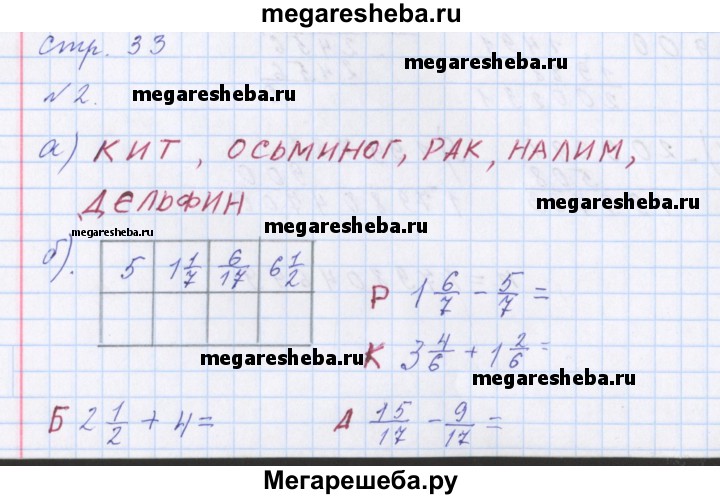 megaresheba.ru
стр. 33
№ 2.
megaresheba.ru
а) КИТ, ОСЬМИНОГ, РАК, НАЛИМ,
ДЕЛЬФИН
megaresheba.ru
megaresheba.ru
megaresheba.ru
б). 5 1 1/7 6/17 6 1/2
Р 1 6/7 - 5/7 =
К 3 4/6 + 1 2/6 =
megaresheba.ru
megaresheba.ru
Б 2 1/2 + 4 = А 15/17 - 9/17 =
Мегарешеба.ру